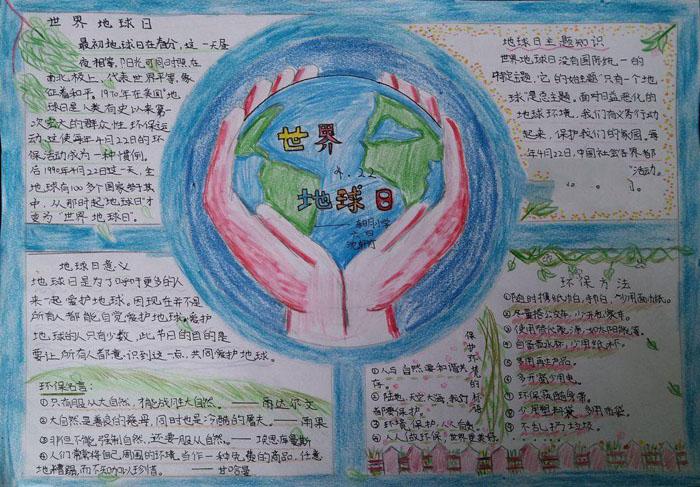 世界地球日
最初地球日在春分，这一天昼
夜相等，阳光可同时照在
南北极上，代表世界平等，象
征着和平。1970年在美国"地
球日是人类有史以来第一
次宏大的群众性环保运
动，这使每年4月22日的环
保活动成为一种惯例。
后1990年4月22日这一天，全
地球有100多个国家参行其
中，从那时起"地球日"才
变为"世界地球日"。
世界
4.22
地球日
地球日主题知识
世界地球日没有国际统一的
特定主题，它的总主题"只有一个地
球"是总主题。面对日益恶化的
地球环境，我们有义务行动
起来，保护我们的家园，每
年4月22日，中国社会各界都
活动。
地球日意义
地球日是为了呼吁更多的人
来一起爱护地球，因现在并不是
所有人都能自觉爱护地球，爱护
地球的人只有少数，此节日的目的是
要让所有人都意识到这一点，共同爱护地球。
环保名言：
①只有服从大自然，才能战胜大自然。——雨达尔文
②大自然是善良的慈母，同时也是冷酷的屠夫。——雨果
③非但不能强制自然，还要服从自然。——埃思库曼斯
④人们常常将自己周围的环境当作一种免费的商品，任意
地糟蹋，而不知加以珍惜。——甘哈曼
保护环境的标语
①人与自然要和谐共
存。
②陆地、天空、大海，我们
都要保护。
③环境保护，人人有责
④人人做环保，世界更美好
环保方法
①随时携帕，少用面纸。
②尽量搭公交车，少开私家车。
③使用替代能源，如太阳能等。
④自备餐具水杯，少用纸杯。
⑤多用再生产品。
⑥多开窗少用电。
⑦环保
⑧少用塑料袋，多用布袋。
⑨不乱扔垃圾。